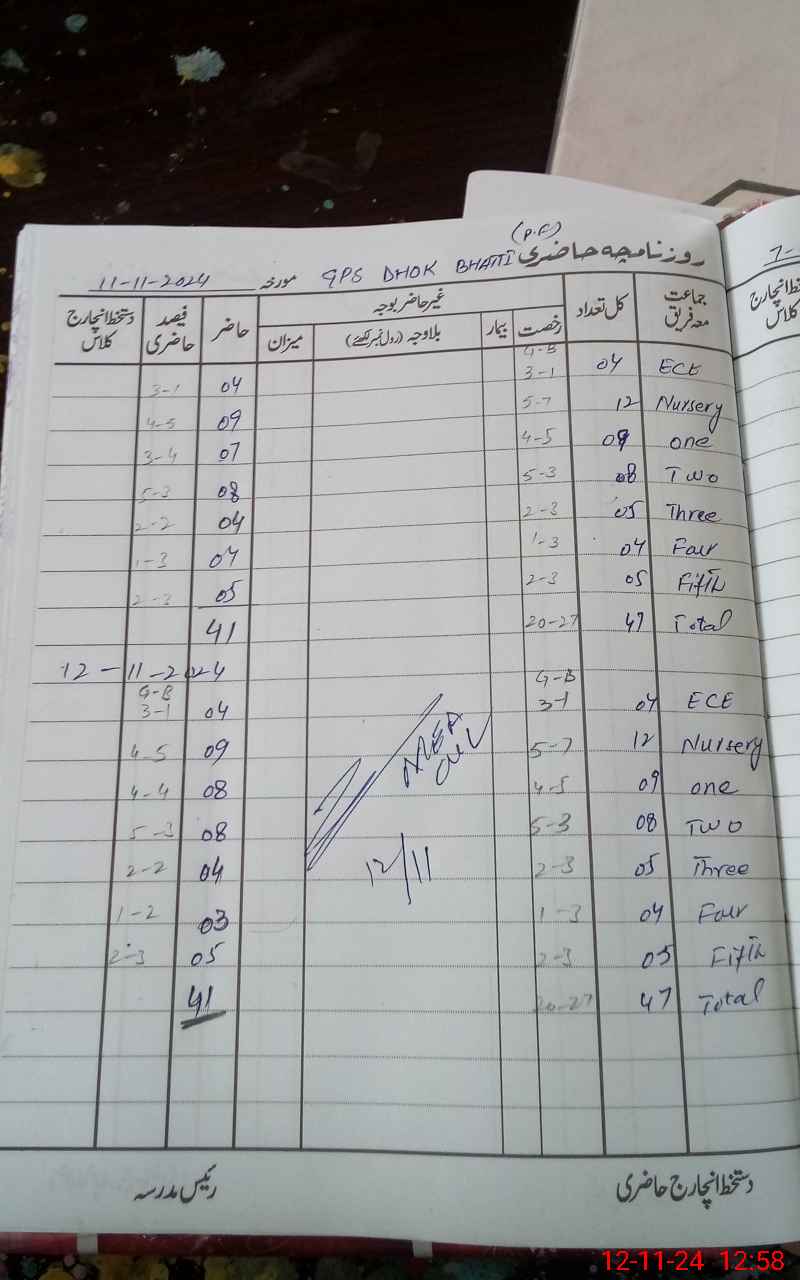 (P.F)
روزنامچہ حاضری GPS DHOK BHATTI مورخہ 11-11-2024
7-
جماعت معہ فریق کل تعداد غیر حاضر بوجہ حاضر فیصد حاضری دستخط انچارج کلاس
رخصت بیمار بلاوجہ (رول نمبر لکھئے) میزان
دستخط انچارج کلاس
G-B
ECE 04 3-1 04 3-1
Nursery 12 5-7 09 4-5
one 09 4-5 07 3-4
Two 08 5-3 08 5-3
Three 05 2-3 04 2-2
Four 04 1-3 04 1-3
Fifth 05 2-3 05 2-3
Total 47 20-27 41
12-11-2024
G-B G-B
ECE 04 3-1 04 3-1
Nursery 12 5-7 09 4-5
one 09 4-5 08 4-4
Two 08 5-3 08 5-3
Three 05 2-3 04 2-2
Four 04 1-3 03 1-2
Fifth 05 2-3 05 2-3
Total 47 20-27 41
MEA
12/11
دستخط انچارج حاضری رئیس مدرسہ
12-11-24 12:58